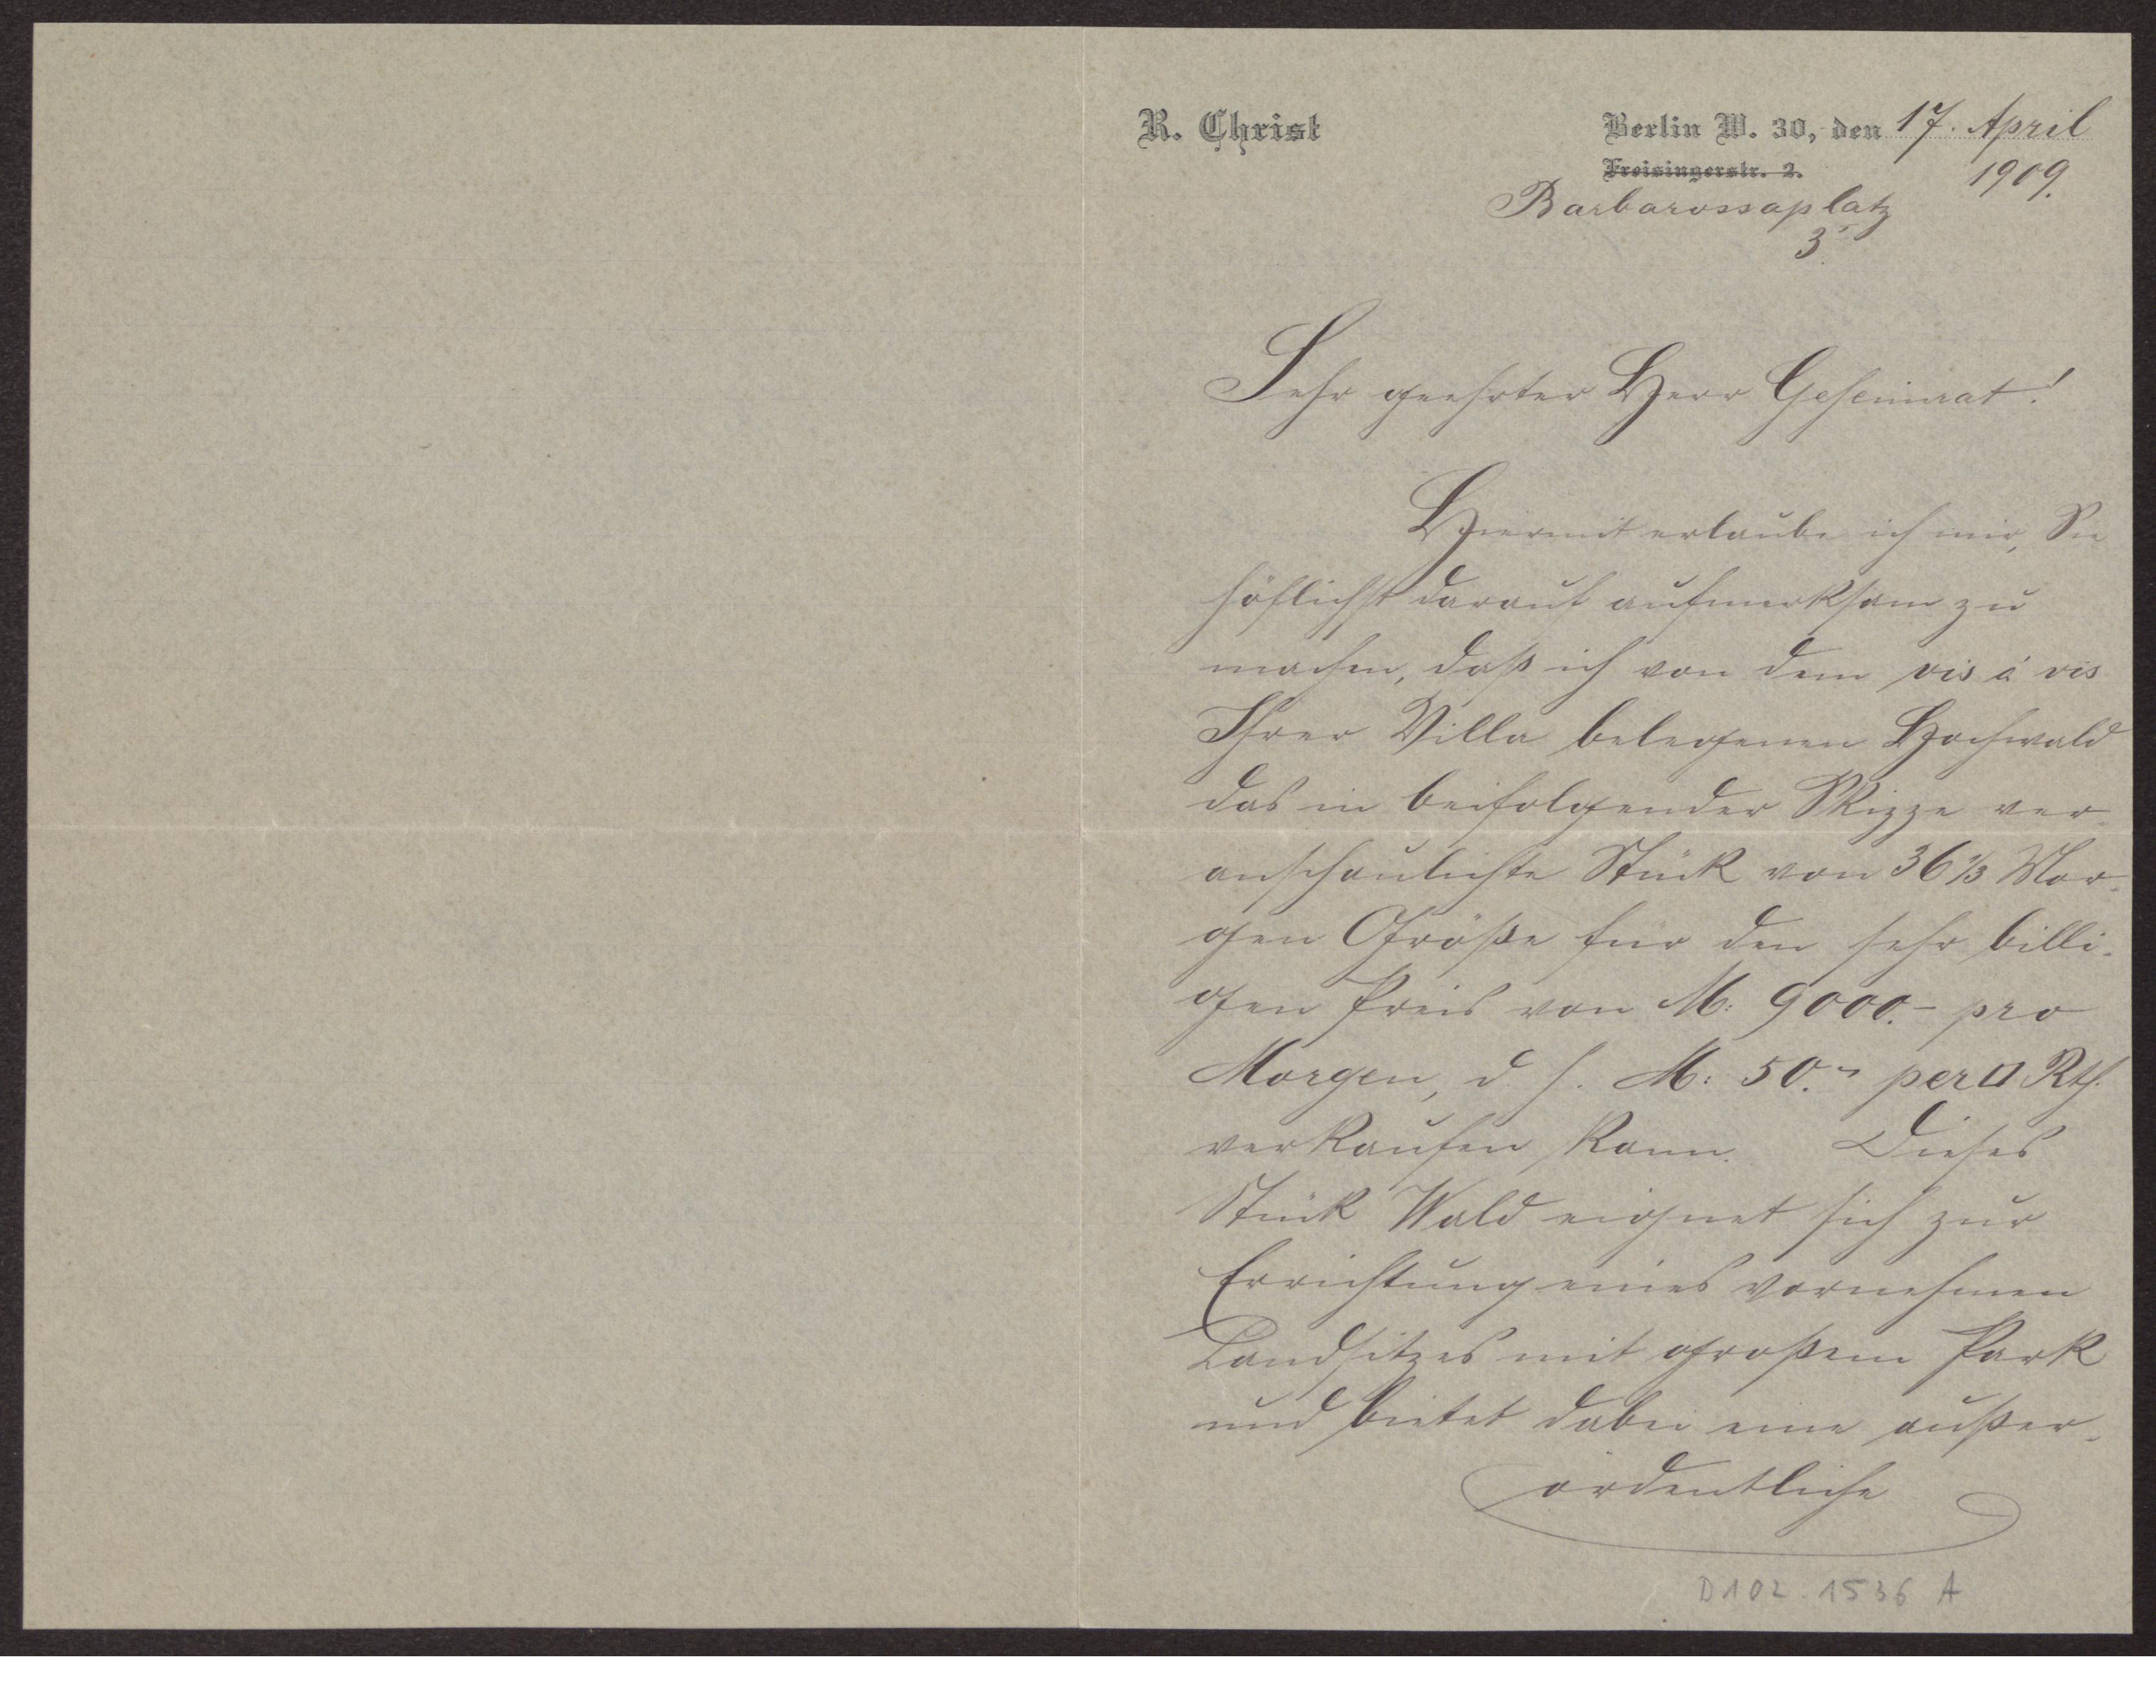 R. Christ
Berlin W. 30, den 17. April
Freisingerstr. 2.
1909.
Barbarossaplatz
3.
Sehr geehrter Herr Geheimrat!
Hiermit erlaube ich mir, Sie
höflichst darauf aufmerksam zu
machen, daß ich von dem vis à vis
Ihrer Villa belegenen Hochwald
das in beifolgender Skizze ver-
anschaulichte Stück von 36 1/3 Mor-
gen Größe für den sehr billi-
gen Preis von M: 9000.- pro
Morgen, d h. M: 50.- per □ Rth.
verkaufen kann. Dieses
Stück Wald eignet sich zur
Errichtung eines vornehmen
Landsitzes mit großem Park
und bietet dabei eine außer-
ordentliche
D102.1536 A